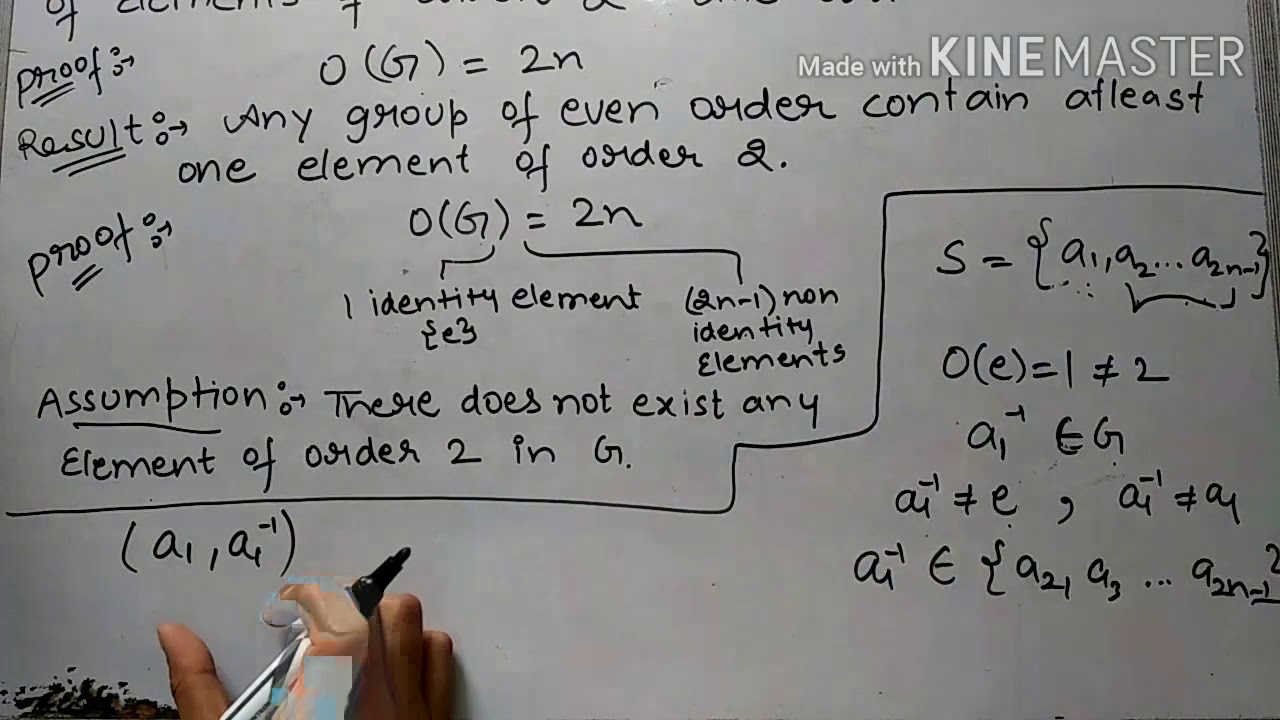 of elements of
Proof:→ O(G) = 2n
Made with KINEMASTER
Result:→ Any group of even order contain atleast
one element of order 2.
Proof:→ O(G) = 2n
1 identity element
{e}
(2n-1) non
identity
Elements
Assumption:→ There does not exist any
Element of order 2 in G.
(a₁, a₁⁻¹)
S = {a₁, a₂ ... a₂ₙ₋₁}
O(e) = 1 ≠ 2
a₁⁻¹ ∈ G
a₁⁻¹ ≠ e , a₁⁻¹ ≠ a₁
a₁⁻¹ ∈ {a₂, a₃ ... a₂ₙ₋₁}